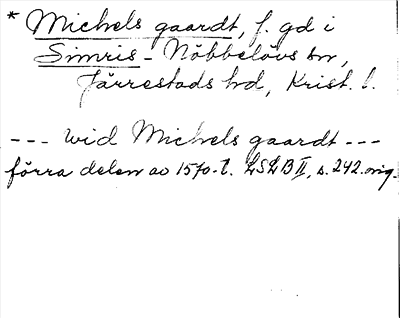 * Michels gaardt, f. gd i
Simris - Nöbbelövs sn,
Järrestads hd, Krist. l.
--- wid Michels gaardt ---
förra delen av 1570-t. LSLB II, s. 242. orig.